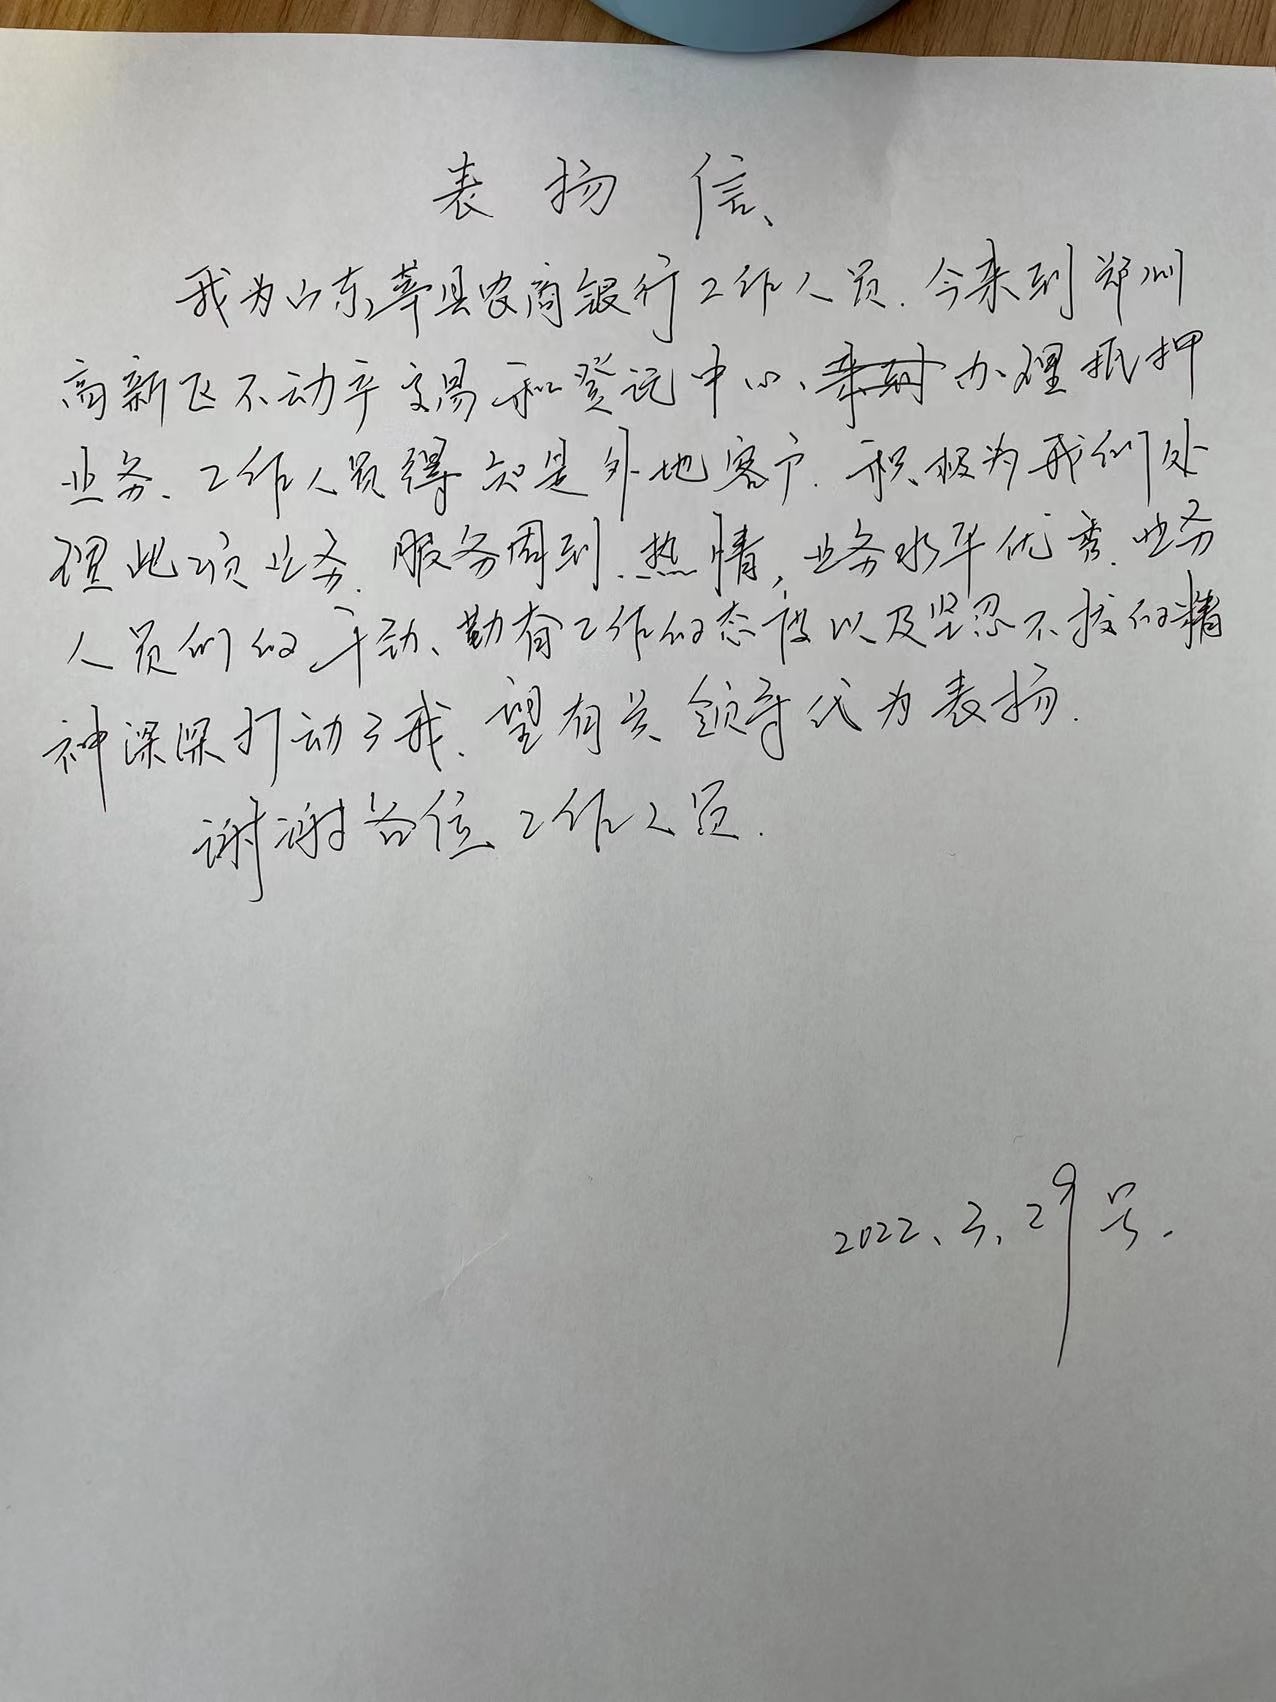 表扬信、
我为山东莘县农商银行工作人员.今来到郑州
高新区不动产交易和登记中心、办理抵押
业务、工作人员得知是外地客户.积极为我们处
理此项业务.服务周到.热情，业务水平优秀.业务
人员们的辛劳、勤奋工作的态度以及坚忍不拔的精
神深深打动了我.望有关领导代为表扬.
谢谢各位工作人员.
2022、3、29号.